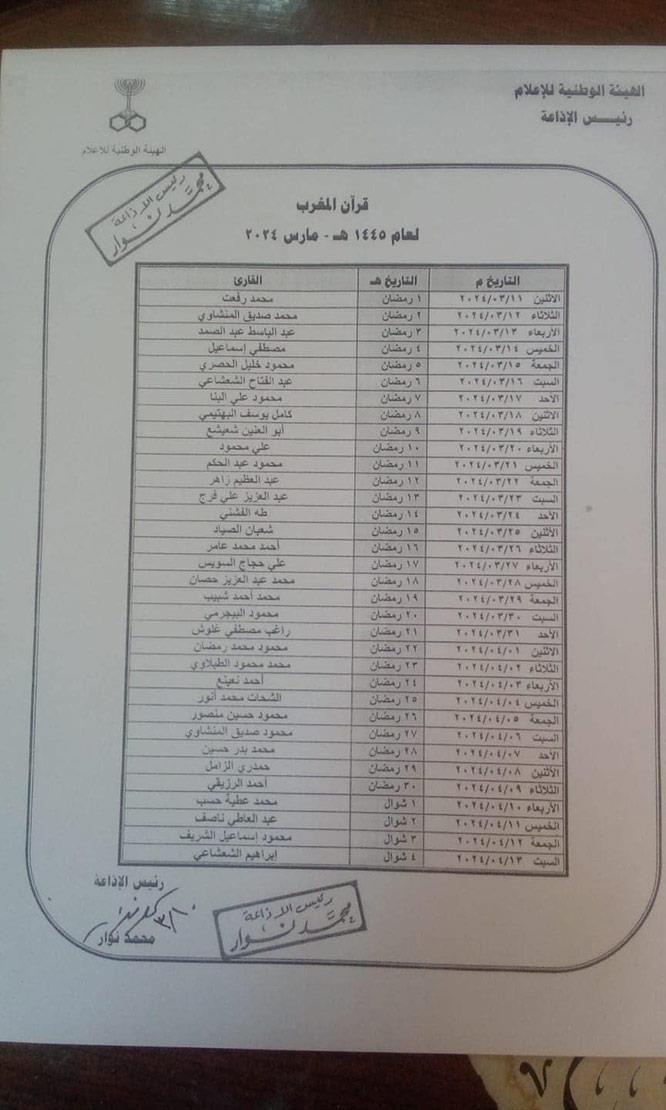 الهيئة الوطنية للإعلام
رئيس الإذاعة
الهيئة الوطنية للاعلام
رئيس الاذاعة
محمد نوار
قرآن المغرب
لعام ١٤٤٥ هـ - مارس ٢٠٢٤
التاريخ م التاريخ هـ القارئ
الاثنين ٢٠٢٤/٠٣/١١ ١ رمضان محمد رفعت
الثلاثاء ٢٠٢٤/٠٣/١٢ ٢ رمضان محمد صديق المنشاوي
الأربعاء ٢٠٢٤/٠٣/١٣ ٣ رمضان عبد الباسط عبد الصمد
الخميس ٢٠٢٤/٠٣/١٤ ٤ رمضان مصطفي إسماعيل
الجمعة ٢٠٢٤/٠٣/١٥ ٥ رمضان محمود خليل الحصري
السبت ٢٠٢٤/٠٣/١٦ ٦ رمضان عبد الفتاح الشعشاعي
الأحد ٢٠٢٤/٠٣/١٧ ٧ رمضان محمود علي البنا
الاثنين ٢٠٢٤/٠٣/١٨ ٨ رمضان كامل يوسف البهتيمي
الثلاثاء ٢٠٢٤/٠٣/١٩ ٩ رمضان أبو العنين شعيشع
الأربعاء ٢٠٢٤/٠٣/٢٠ ١٠ رمضان علي محمود
الخميس ٢٠٢٤/٠٣/٢١ ١١ رمضان محمود عبد الحكم
الجمعة ٢٠٢٤/٠٣/٢٢ ١٢ رمضان عبد العظيم زاهر
السبت ٢٠٢٤/٠٣/٢٣ ١٣ رمضان عبد العزيز علي فرج
الأحد ٢٠٢٤/٠٣/٢٤ ١٤ رمضان طه الفشني
الأثنين ٢٠٢٤/٠٣/٢٥ ١٥ رمضان شعبان الصياد
الثلاثاء ٢٠٢٤/٠٣/٢٦ ١٦ رمضان أحمد محمد عامر
الأربعاء ٢٠٢٤/٠٣/٢٧ ١٧ رمضان علي حجاج السويس
الخميس ٢٠٢٤/٠٣/٢٨ ١٨ رمضان محمد عبد العزيز حصان
الجمعة ٢٠٢٤/٠٣/٢٩ ١٩ رمضان محمد أحمد شبيب
السبت ٢٠٢٤/٠٣/٣٠ ٢٠ رمضان محمود البيجرمي
الأحد ٢٠٢٤/٠٣/٣١ ٢١ رمضان راغب مصطفي غلوش
الأثنين ٢٠٢٤/٠٤/٠١ ٢٢ رمضان محمود محمد رمضان
الثلاثاء ٢٠٢٤/٠٤/٠٢ ٢٣ رمضان محمد محمود الطبلاوي
الأربعاء ٢٠٢٤/٠٤/٠٣ ٢٤ رمضان أحمد نعينع
الخميس ٢٠٢٤/٠٤/٠٤ ٢٥ رمضان الشحات محمد أنور
الجمعة ٢٠٢٤/٠٤/٠٥ ٢٦ رمضان محمود حسين منصور
السبت ٢٠٢٤/٠٤/٠٦ ٢٧ رمضان محمود صديق المنشاوي
الأحد ٢٠٢٤/٠٤/٠٧ ٢٨ رمضان محمد بدر حسين
الأثنين ٢٠٢٤/٠٤/٠٨ ٢٩ رمضان حمدي الزامل
الثلاثاء ٢٠٢٤/٠٤/٠٩ ٣٠ رمضان أحمد الرزيقي
الأربعاء ٢٠٢٤/٠٤/١٠ ١ شوال محمد عطية حسب
الخميس ٢٠٢٤/٠٤/١١ ٢ شوال عبد العاطي ناصف
الجمعة ٢٠٢٤/٠٤/١٢ ٣ شوال محمود إسماعيل الشريف
السبت ٢٠٢٤/٠٤/١٣ ٤ شوال إبراهيم الشعشاعي
رئيس الإذاعة
٣/١٠
محمد نوار
رئيس الاذاعة
محمد نوار